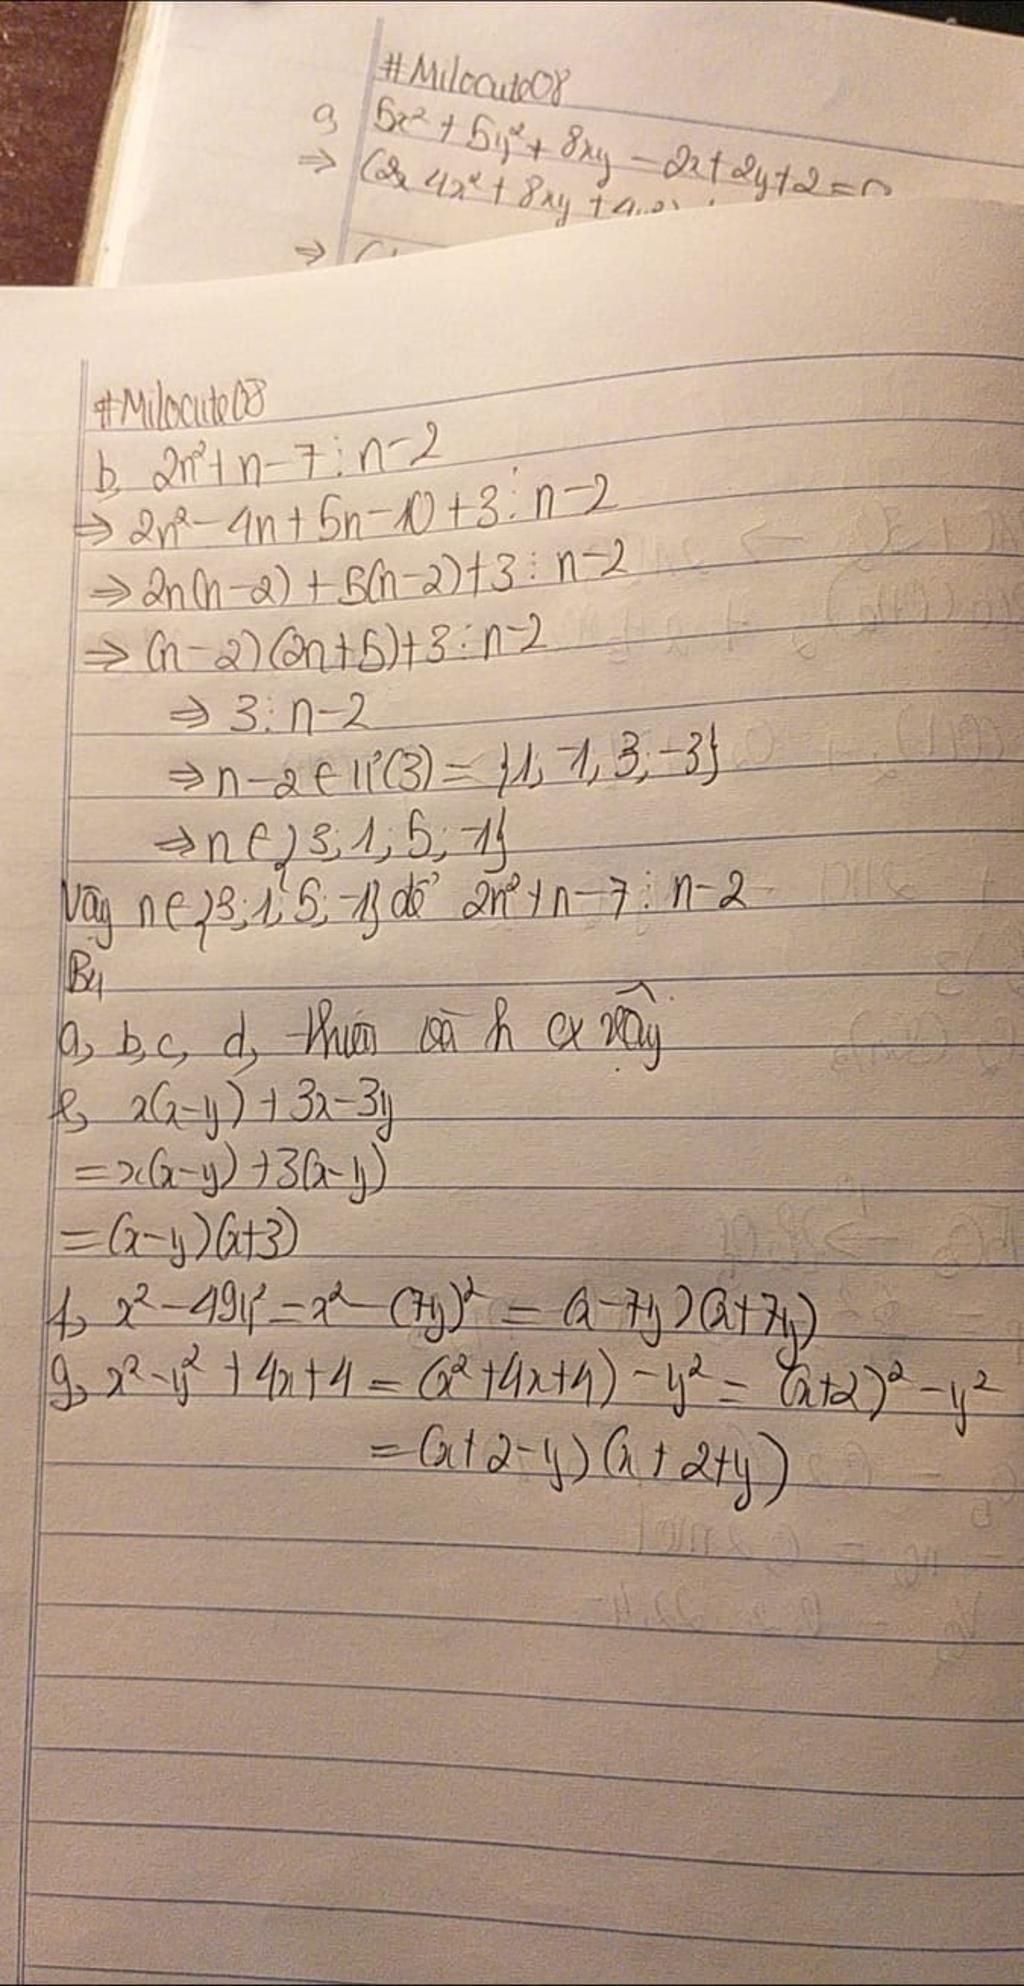 #Milocute08
a, 5x² + 5y² + 8xy - 2x + 2y + 2 = 0
⇒ (2x 4x² + 8xy +
⇒ (
#Milocute08
b, 2n² + n - 7 ⋮ n - 2
⇒ 2n² - 4n + 5n - 10 + 3 ⋮ n - 2
⇒ 2n(n - 2) + 5(n - 2) + 3 ⋮ n - 2
⇒ (n - 2)(2n + 5) + 3 ⋮ n - 2
⇒ 3 ⋮ n - 2
⇒ n - 2 ∈ Ư(3) = {1, -1, 3, -3}
⇒ n ∈ {3; 1; 5; -1}
Vậy n ∈ {3; 1; 5; -1} để 2n² + n - 7 ⋮ n - 2
B4
a, b, c, d,
e, x(x - y) + 3x - 3y
= x(x - y) + 3(x - y)
= (x - y)(x + 3)
f, x² - 49y² = x² - (7y)² = (x - 7y)(x + 7y)
g, x² - y² + 4x + 4 = (x² + 4x + 4) - y² = (x + 2)² - y²
= (x + 2 - y)(x + 2 + y)